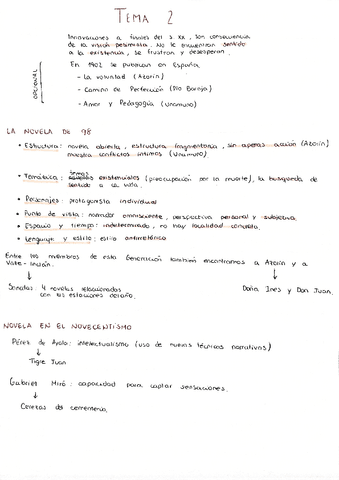 TEMA 2
Innovaciones a finales del s. XX, son consecuencia
de la visión pesimista. No le encuentran sentido
a la existencia, se frustran y desesperan.
OPCIONAL
En 1902 se publican en España
- La voluntad (Azorín)
- Camino de Perfección (Pío Baroja)
- Amor y Pedagogía (Unamuno)
LA NOVELA DE 98
• Estructura: novela abierta, estructura fragmentaria, sin apenas acción (Azorín)
muestra conflictos íntimos (Unamuno)
• Temática: temas existenciales (preocupación por la muerte), la búsqueda de
sentido a la vida.
• Personajes: protagonista individual
• Punto de vista: narrador omnisciente, perspectiva personal y subjetiva.
• Espacio y tiempo: indeterminado, no hay localidad concreta.
• Lenguaje y estilo: estilo antirretórico
Entre los miembros de esta Generación también encontramos a Azorín y a
Valle-Inclán.
Sonatas: 4 novelas relacionadas
con las estaciones del año.
Doña Ines y Don Juan.
NOVELA EN EL NOVECENTISMO
Pérez de Ayala: intelectualismo (uso de nuevas técnicas narrativas)
Tigre Juan
Gabriel Miró: capacidad para captar sensaciones.
Cerezas del cementerio.